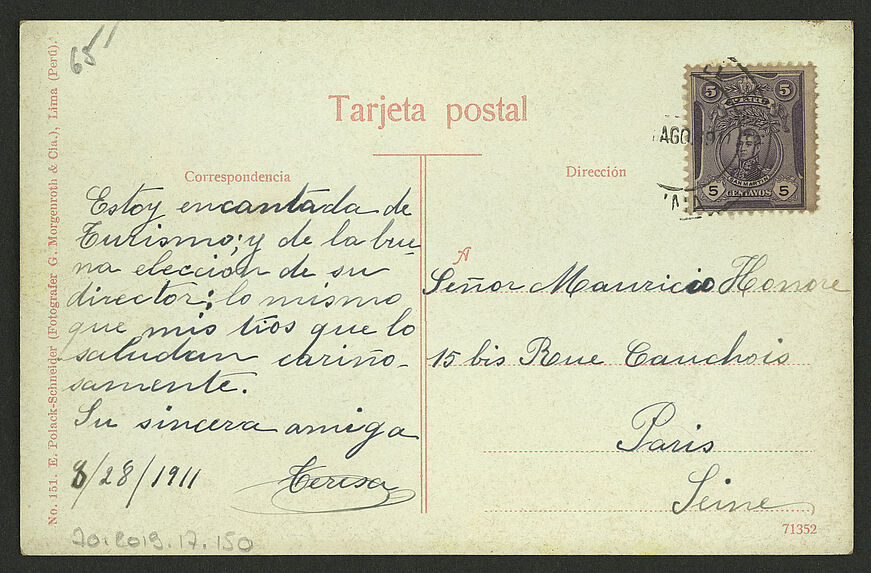 65
Tarjeta postal
Correspondencia
Dirección
Estoy encantada de
Turismo; y de la bue-
na elección de su
director; lo mismo
que mis tíos que lo
saludan cariño-
samente.
Su sincera amiga
8/28/1911
Teresa
A
Señor Mauricio Honore
15 bis Rue Cauchois
Paris
Seine
5 5
PERU
SAN MARTIN
5 CENTAVOS 5
AGO
No. 151. E. Polack-Schneider (Fotografer G. Morgenroth & Cia.), Lima (Perú).
70.2019.17.150
71352